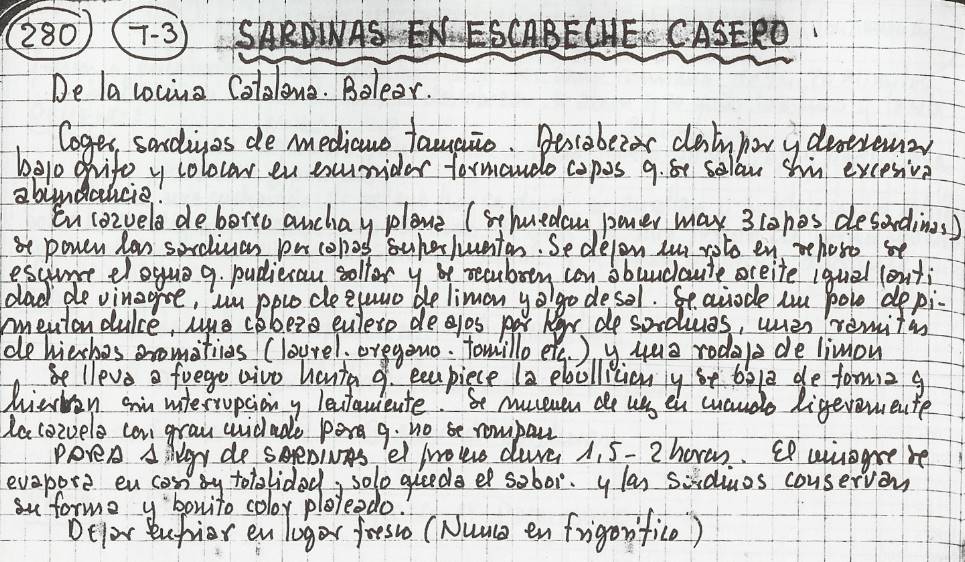 280 T-3 SARDINAS EN ESCABECHE CASERO.
De la cocina Catalana. Balear.
Coger sardinas de mediano tamaño. Descabezar destripar y desescamar
bajo grifo y colocar en escurridor formando capas q. se salan sin excesiva
abundancia.
En cazuela de barro ancha y plana (se puedan poner max 3 capas de sardinas)
se ponen las sardinas por capas superpuestas. Se dejan un rato en reposo se
escurre el agua q. pudieran soltar y se recubren con abundante aceite igual canti
dad de vinagre, un poco de zumo de limon y algo de sal. Se añade un poco de pi-
menton dulce, una cabeza entero de ajos por Kgr de sardinas, unas ramitas
de hierbas aromatiias (laurel. oregano. tomillo etc.) y una rodaja de limon
Se lleva a fuego vivo hasta q. empiece la ebullicion y se baja de forma q
hiervan sin interrupción y lentamente. Se mueven de vez en cuando ligeramente
la cazuela con gran cuidado para q. no se rompan
PARA 1 Kgr de SARDINAS el proceso dura 1,5 - 2 horas. El vinagre se
evapora en casi su totalidad, solo queda el sabor. y las sardinas conservan
su forma y bonito color plateado.
Dejar enfriar en lugar fresco (Nunca en frigorifico)